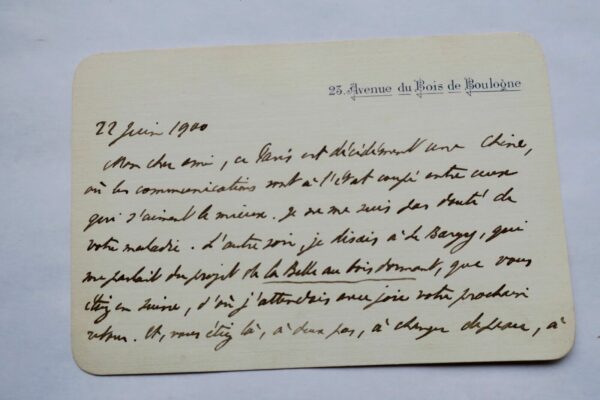 25. Avenue du Bois de Boulogne
22 Juin 1900
Mon cher ami, ce Paris est décidément une Chine,
où les communications sont à l'état coupé entre ceux
qui s'aiment le mieux. Je ne me suis pas douté de
votre maladie. L'autre soir, je disais à Le Bargy, qui
me parlait du projet de la Belle au bois dormant, que vous
étiez en Suisse, d'où j'attendais avec joie votre prochain
retour. Et, vous étiez là, à deux pas, à changer de peau, à